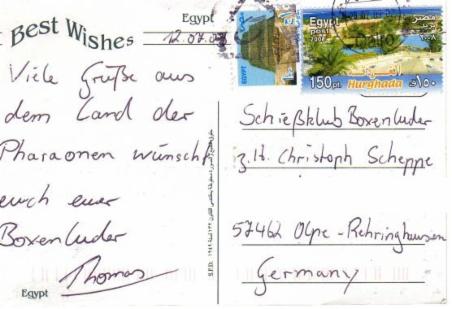 Egypt
Best Wishes
12.07.09
Viele Grüße aus
dem Land der
Pharaonen wünscht
euch euer
Boxenluder
Thomas
Egypt
EGYPT
Egypt
post
مصر
بريد
٢٠٠٨
150pt.
Hurghada
الغردقة
١٥٠
Schießklub Boxenluder
z.H. Christoph Scheppe
57462 Olpe-Rehringhausen
Germany